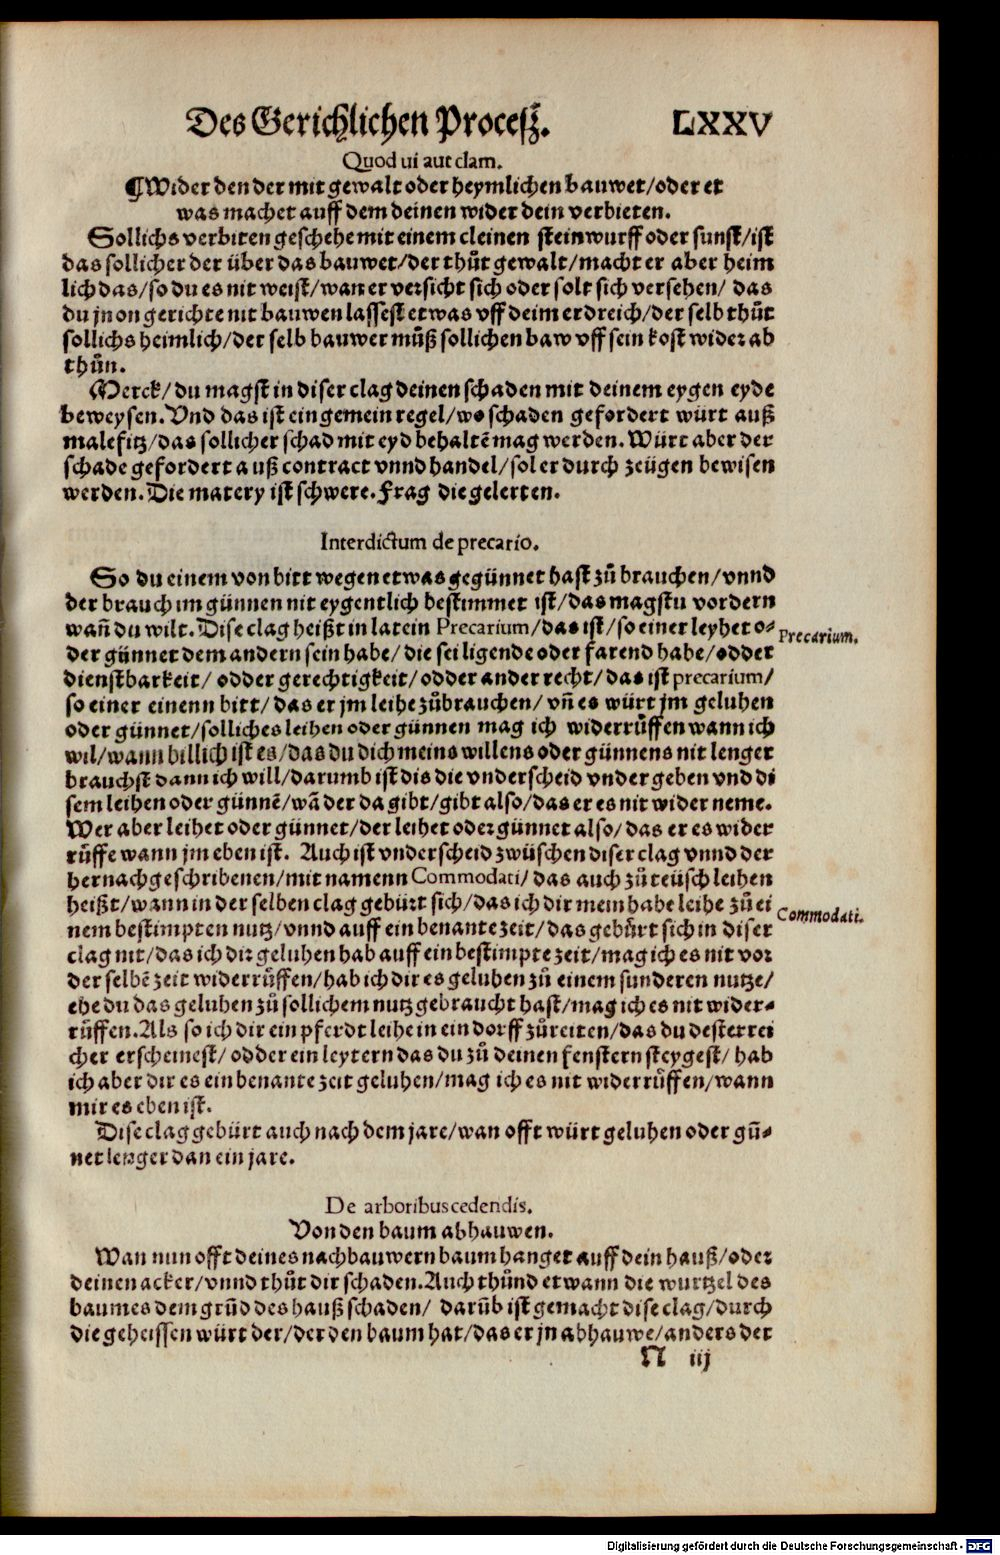 Des Gerichlichen Procesz. LXXV
Quod ui aut clam.
¶Wider den der mit gewalt oder heymlichen bauwet/oder et
was machet auff dem deinen wider dein verbieten.
Sollichs verbiten geschehe mit einem cleinen steinwurff oder sunst/ist
das sollicher der über das bauwet/der thůt gewalt/macht er aber heim
lich das/so du es nit weist/wan er versicht sich oder solt sich versehen/ das
du jn on gerichte nit bauwen lassest etwas vff deim erdreich/der selb thůt
sollichs heimlich/der selb bauwer můß sollichen baw vff sein kost wider ab
thůn.
Merck/du magst in diser clag deinen schaden mit deinem eygen eyde
beweysen.Vnd das ist ein gemein regel/wo schaden gefordert würt auß
malefitz/das sollicher schad mit eyd behaltē mag werden.Würt aber der
schade gefordert auß contract vnnd handel/sol er durch zeügen bewisen
werden.Die matery ist schwere.Frag die gelerten.
Interdictum de precario.
So du einem von bitt wegen etwas gegünnet hast zů brauchen/vnnd
der brauch im günnen nit eygentlich bestimmet ist/das magstu vordern
wañ du wilt.Dise clag heißt in latein Precarium/das ist/so einer leyhet o-
Precarium.
der günnet dem andern sein habe/die sei ligende oder farend habe/odder
dienstbarkeit/ odder gerechtigkeit/odder ander recht/das ist precarium/
so einer einenn bitt/das er jm leihe zůbrauchen/vñ es würt jm geluhen
oder günnet/solliches leihen oder günnen mag ich widerrůffen wann ich
wil/wann billich ist es/das du dich meins willens oder günnens nit lenger
brauchst dann ich will/darumb ist dis die vnderscheid vnder geben vnd di
sem leihen oder günnē/wā der da gibt/gibt also/das er es nit wider neme.
Wer aber leihet oder günnet/der leihet oder günnet also/das er es wider
růffe wann jm eben ist. Auch ist vnderscheid zwüschen diser clag vnnd der
hernachgeschribenen/mit namenn Commodati/das auch zů teüsch leihen
heißt/wann in der selben clag gebürt sich/das ich dir mein habe leihe zů ei
Commodati.
nem bestimpten nutz/vnnd auff ein benante zeit/das gebürt sich in diser
clag nit/das ich dir geluhen hab auff ein bestimpte zeit/mag ich es nit vor
der selbē zeit widerrůffen/hab ich dir es geluhen zů einem sunderen nutze/
ehe du das geluhen zů sollichem nutz gebraucht hast/mag ich es nit wider-
růffen.Als so ich dir ein pferdt leihe in ein dorff zůreiten/das du desterrei
cher erscheinest/odder ein leytern das du zů deinen fenstern steygest/hab
ich aber dir es ein benante zeit geluhen/mag ich es nit widerrůffen/wann
mir es eben ist.
Dise clag gebürt auch nach dem jare/wan offt würt geluhen oder gü-
net lenger dan ein jare.
De arboribus cedendis.
Von den baum abhauwen.
Wan nun offt deines nachbauwern baum hanget auff dein hauß/oder
deinen acker/vnnd thůt dir schaden.Auch thůnd etwann die wurtzel des
baumes dem grūd des hauß schaden/ darūb ist gemacht dise clag/durch
die geheissen würt der/der den baum hat/das er jn abhauwe/anders der
N iij
Digitalisierung gefördert durch die Deutsche Forschungsgemeinschaft - DFG